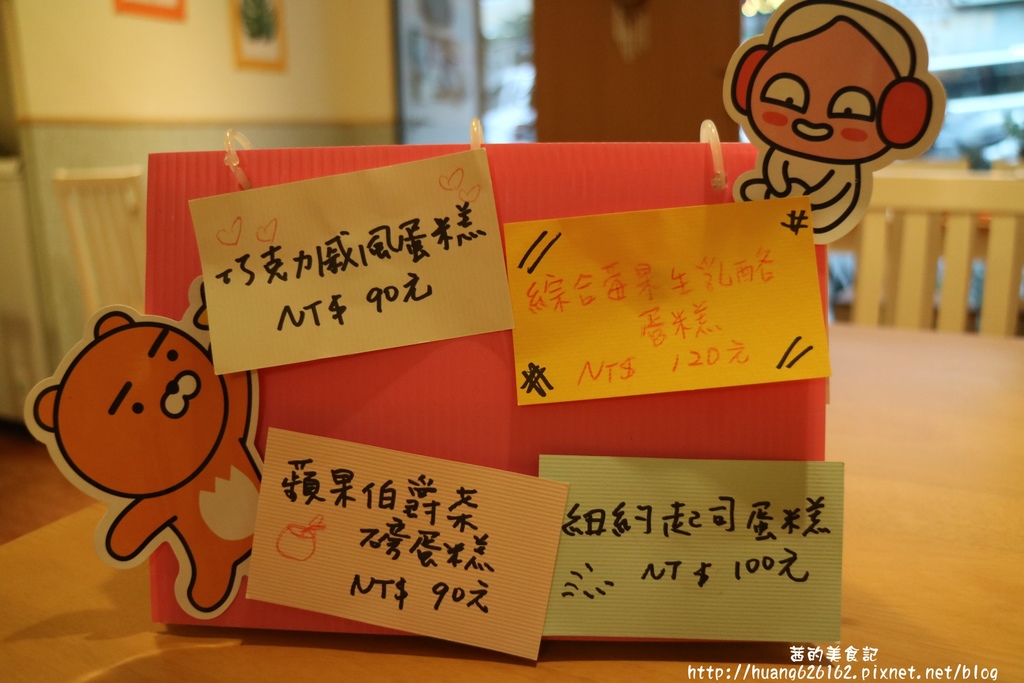 巧克力戚風蛋糕
NT$ 90元
綜合莓果生乳酪
蛋糕
NT$ 120元
蘋果伯爵茶
磅蛋糕
NT$ 90元
紐約起司蛋糕
NT$ 100元
茜的美食記
http://huang626162.pixnet.net/blog